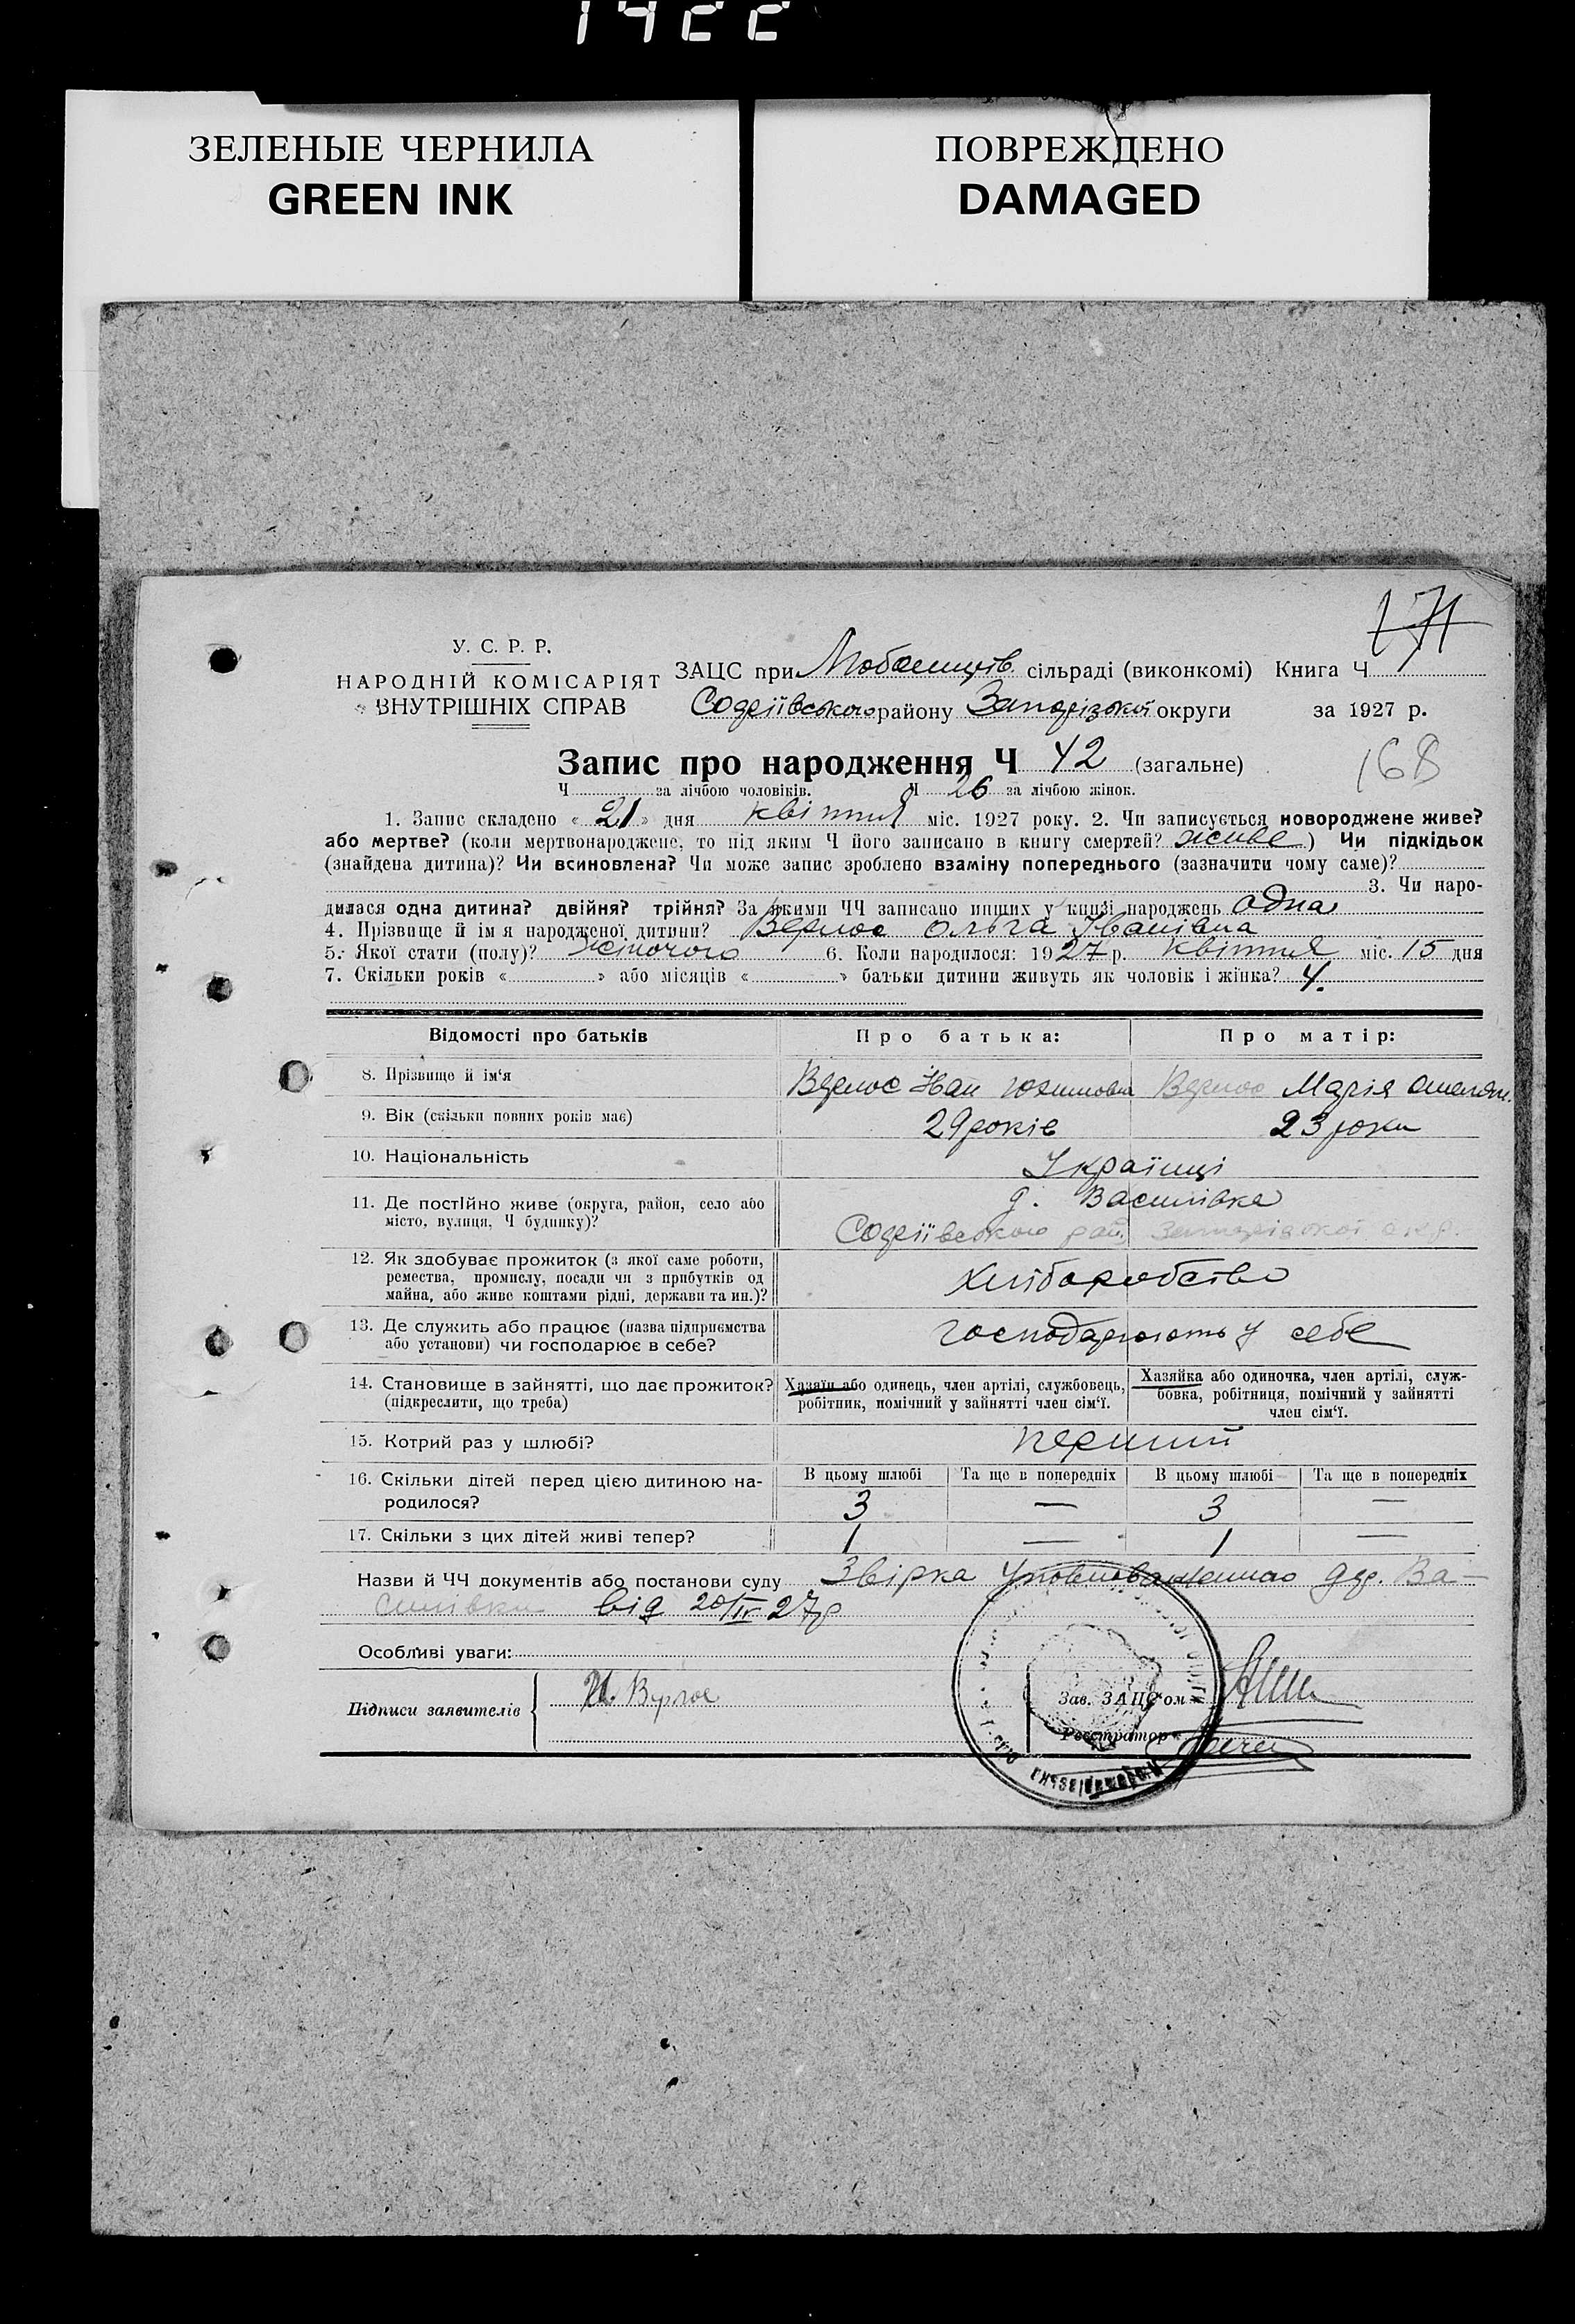 1422
ЗЕЛЕНЫЕ ЧЕРНИЛА
GREEN INK
ПОВРЕЖДЕНО
DAMAGED
171
У. С. Р. Р.
НАРОДНІЙ КОМІСАРІЯТ
ВНУТРІШНІХ СПРАВ
ЗАЦС при сільраді (виконкомі) Книга Ч
Софіївського району Запорізької округи за 1927 р.
Запис про народження Ч 42 (загальне)
168
Ч за лічбою чоловіків. Ч 26 за лічбою жінок.
1. Запис складено « 21 » дня квітня міс. 1927 року. 2. Чи записується новороджене живе?
або мертве? (коли мертвонароджене, то під яким Ч його записано в книгу смертей? живе ) Чи підкідьок
(знайдена дитина)? Чи всиновлена? Чи може запис зроблено взаміну попереднього (зазначити чому саме)?
3. Чи наро-
дилася одна дитина? двійня? трійня? За якими ЧЧ записано инших у книзі народжень одна
4. Прізвище й ім я народженої дитини? Вернос Ольга Іванівна
5. Якої стати (полу)? жіночого 6. Коли народилося: 1927 р. квітня міс. 15 дня
7. Скільки років « » або місяців « » батьки дитини живуть як чоловік і жінка? 4.
Відомості про батьків Про батька: Про матір:
8. Прізвище й ім‘я Вернос Іван Вернос Марія
9. Вік (скільки повних років має) 29 років 23 роки
10. Національність Українці
11. Де постійно живе (округа, район, село або
місто, вулиця, Ч будинку)?
д. Василівка
Софіївського рай. Запорізької окр.
12. Як здобуває прожиток (з якої саме роботи,
ремества, промислу, посади чи з прибутків од
майна, або живе коштами рідні, держави та ин.)?
Хліборобство
13. Де служить або працює (назва підприємства
або установи) чи господарює в себе?
господарюють у себе
14. Становище в зайнятті, що дає прожиток?
(підкреслити, що треба)
Хазяїн або одинець, член артілі, службовець,
робітник, помічний у зайнятті член сім‘ї.
Хазяйка або одиночка, член артілі, служ-
бовка, робітниця, помічний у зайнятті
член сім‘ї.
15. Котрий раз у шлюбі? перший
16. Скільки дітей перед цією дитиною на-
родилося?
В цьому шлюбі Та ще в попередніх В цьому шлюбі Та ще в попередніх
3 — 3 —
17. Скільки з цих дітей живі тепер? 1 — 1 —
Назви й ЧЧ документів або постанови суду Звірка д. Ва-
силівки від 20/IV 27 р
Особливі уваги:
Підписи заявителів И. Вернос
Зав. ЗАЦС‘ом
Реєстратор